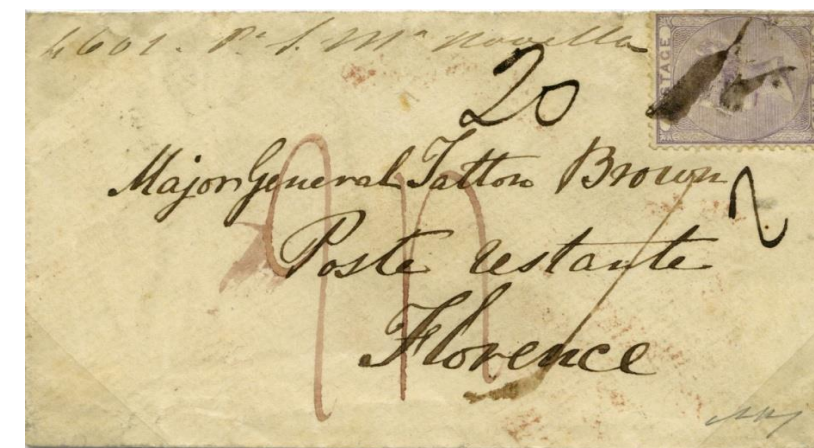 4601. P. S. Mª Novella
POSTAGE
20
Major General Tatton Brown
2
Poste restante
Florence